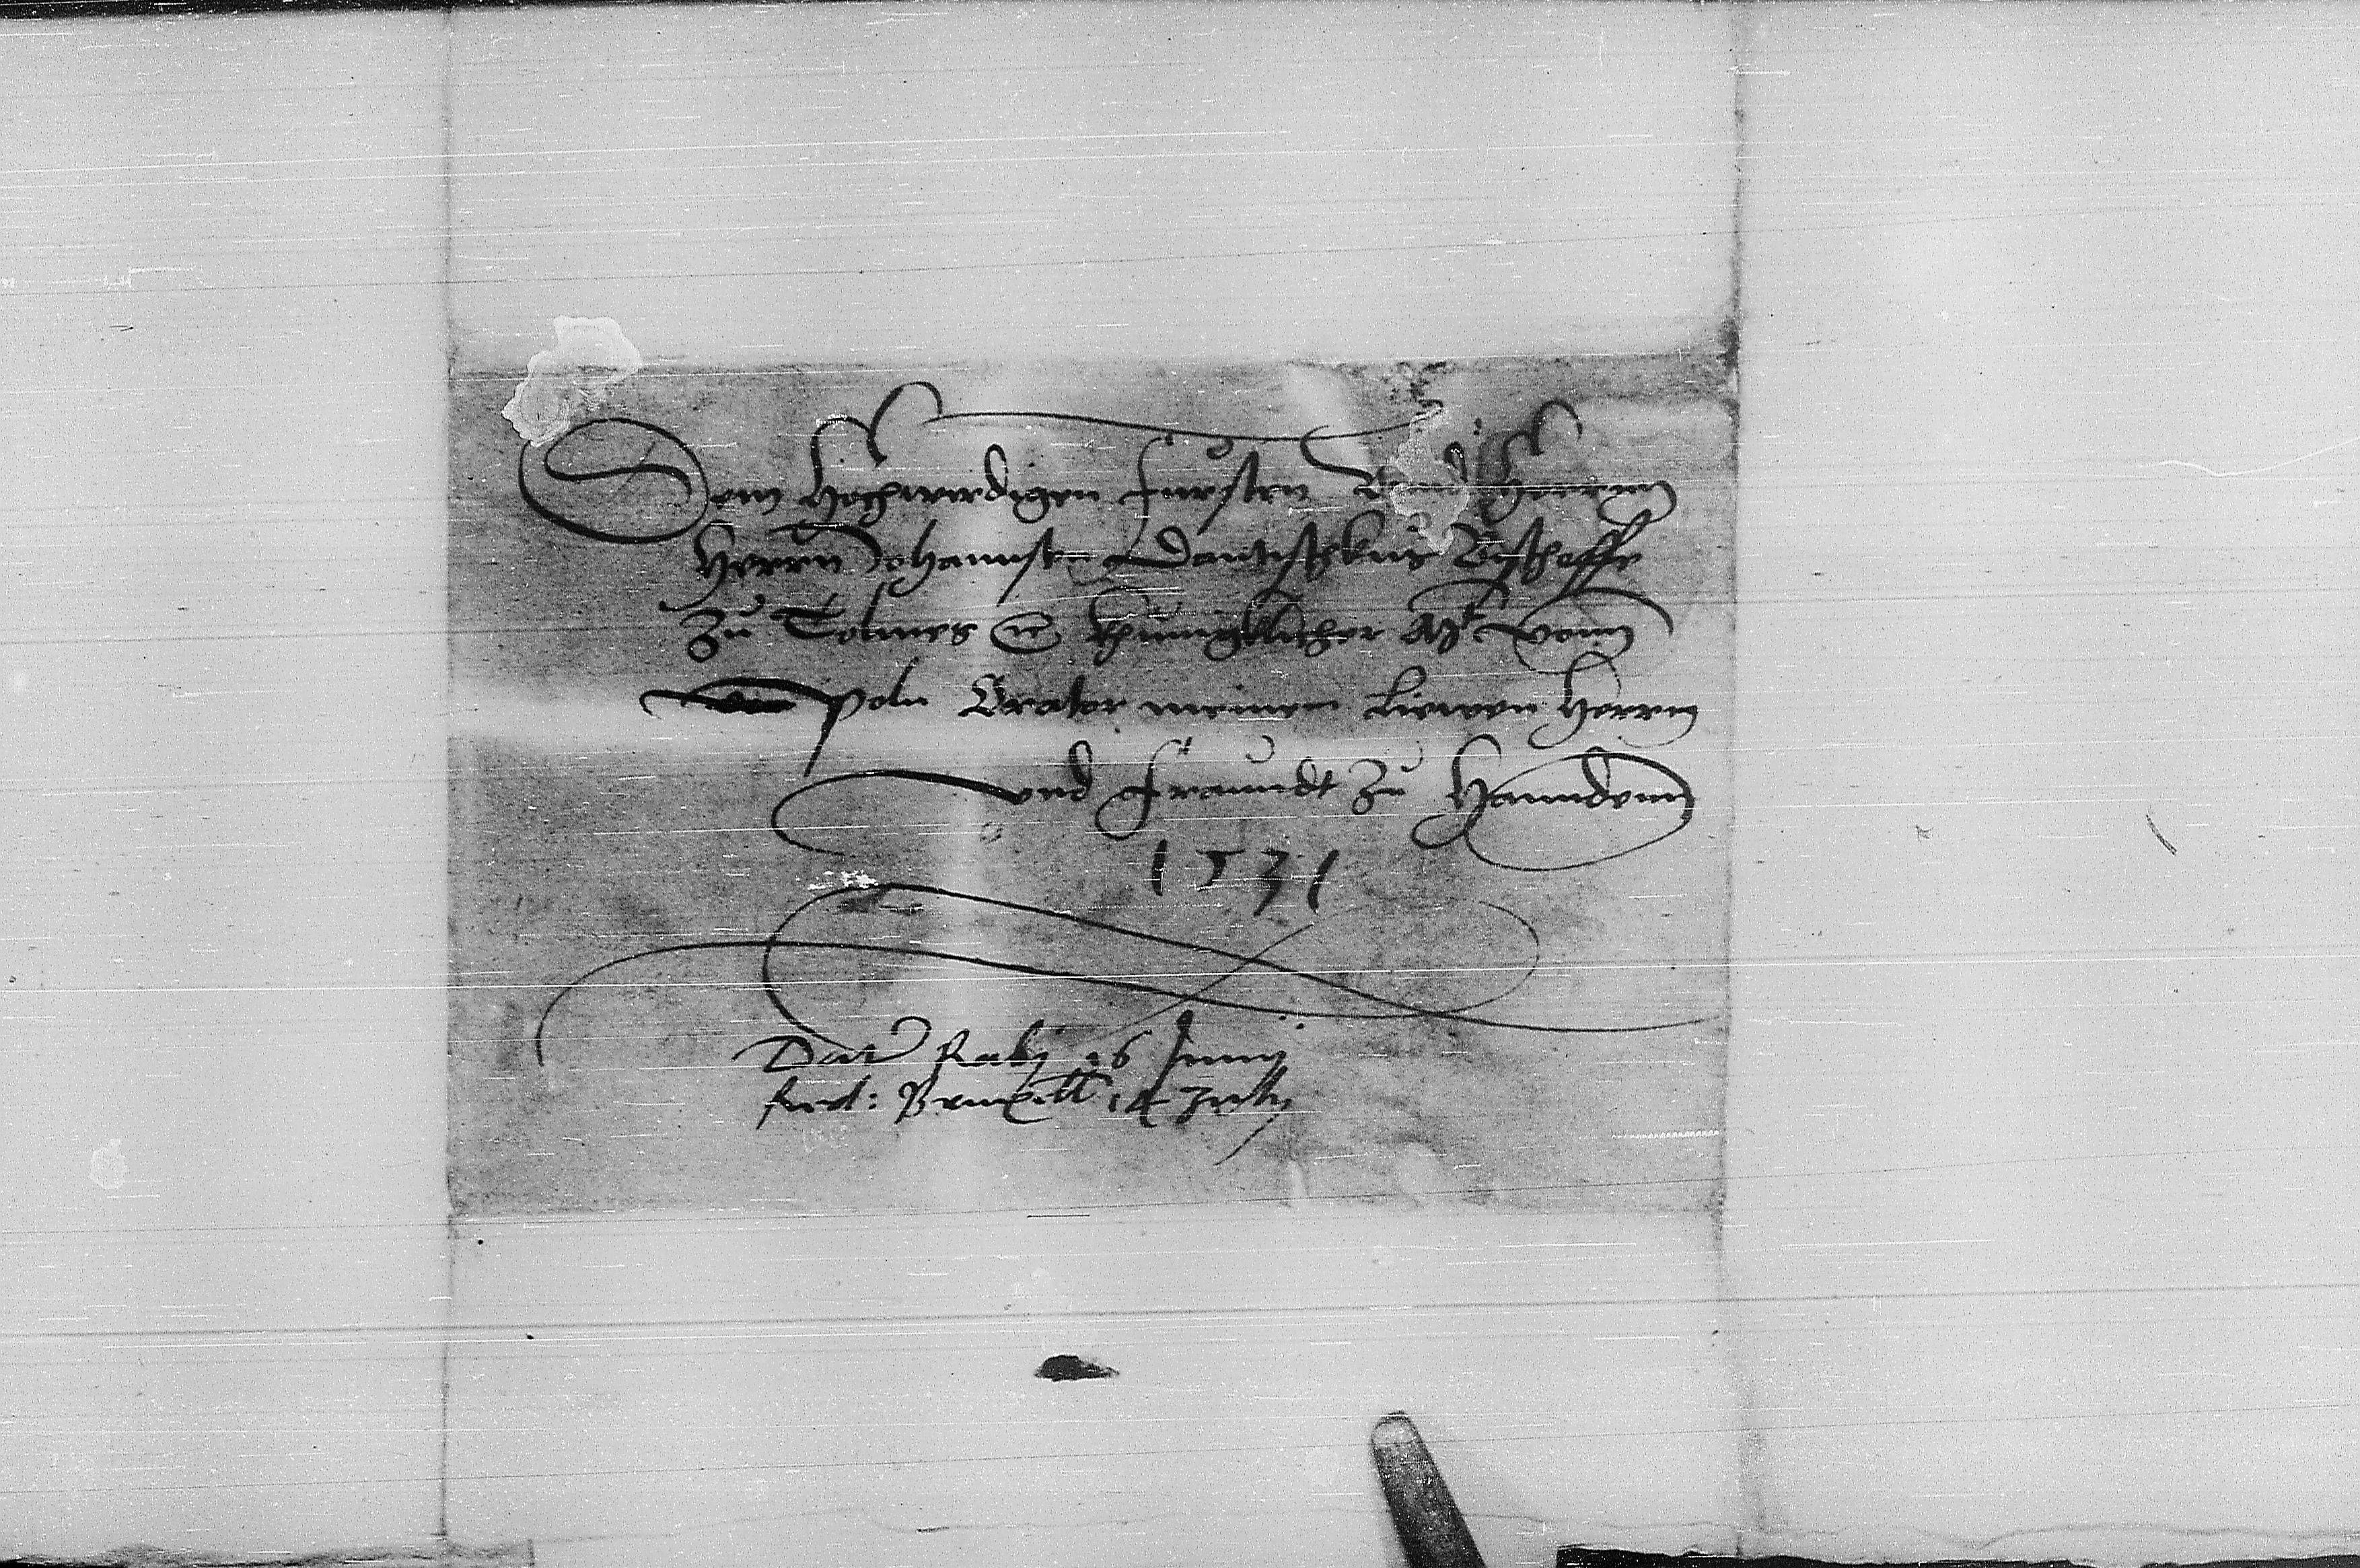 Dem Hochwirdigen Fursten Vnnd Herrnn
Herrnn Johannsen Dantischkus Bischoffe
Zu Colmes etc Khunigklicher Mt vonn
Poln Orator meinem Liewen Herrn
vnd Freundt Zu Hanndenn
1531
Dat Raby 16 Junij
Red: Bruxell 14 Julij